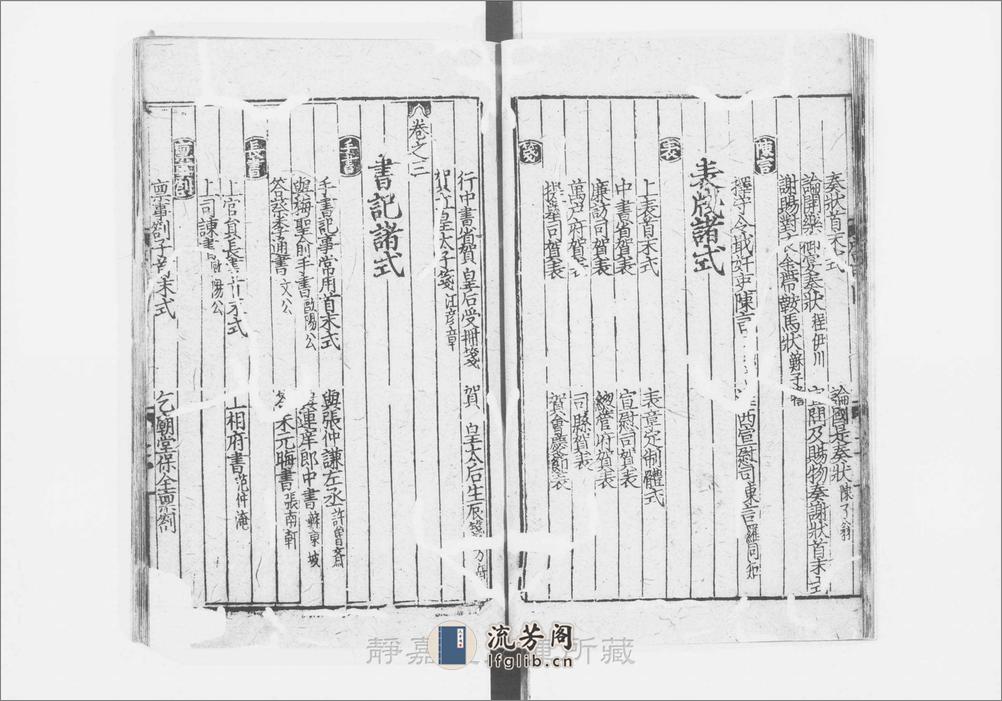 奏狀首末式
論國是奏狀 陳了翁
論開樂御宴奏狀 程伊川
宣問及賜物奏謝狀首末式
謝賜對衣金帶鞍馬狀
陳言
擇守令戢奸吏陳言
西宣慰司陳言
表牋諸式
表
上表首末式
表章定制體式
中書省賀表
宣慰司賀表
廉訪司賀表
總管府賀表
萬戶府賀表
司縣賀表
提舉司賀表
賀會慶節表
箋
行中書省賀 皇后受冊箋
賀 皇太后生辰箋
賀 皇太子箋 江彥章
卷之三
書記諸式
手書
手書記事常用首末式
與張仲謙左丞 許魯齋
與梅聖俞手書 歐陽公
與連庠郎中書 蘇東坡
答蔡季通書 文公
朱元晦書 張南軒
長書
上官員長書首末式
上相府書 范仲淹
上司諫書 歐陽公
稟事劄
稟事劄子首末式
乞廟堂保全稟劄
靜嘉 所藏
流芳阁
lfglib.cn